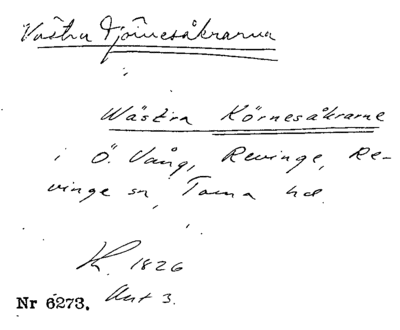 Västra Tjörnesåkrarna
Wästra Körnesåkrarne
i Ö. Vång, Revinge, Re-
vinge sn, Torna hd.
K. 1826
Akt 3.
Nr 6273.